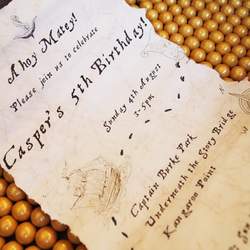 Ahoy Matey!
Please join us to celebrate
Casper's 5th Birthday!
Sunday 4th August
2-5pm
Captain Burke Park
Underneath the Story Bridge
Kangaroo Point